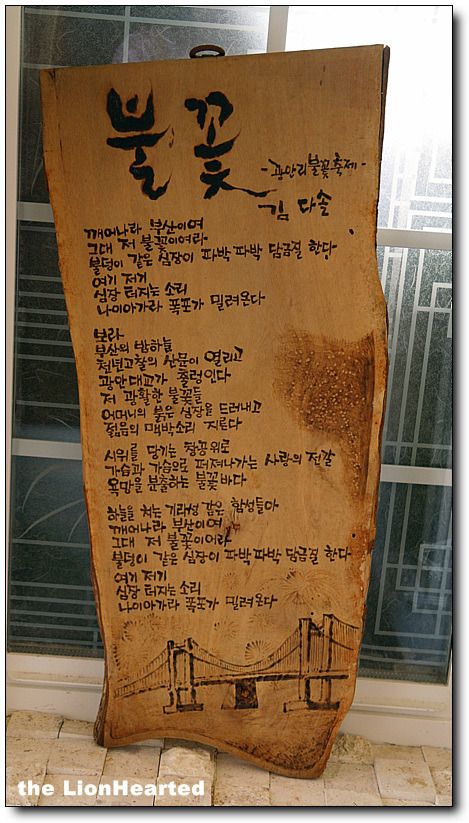 불꽃
-광안리불꽃축제-
김 다솔
깨어나라 부산이여
그대 저 불꽃이여라
불덩이 같은 심장이 파박파박 담금질 한다
여기 저기
심장 터지는 소리
나이아가라 폭포가 밀려온다
보라
부산의 밤하늘
천년고찰의 산문이 열리고
광안대교가 출렁인다
저 광활한 불꽃들
어머니의 붉은 심장을 드러내고
젊음의 맥박소리 지른다
시위를 당기는 창공위로
가슴과 가슴으로 퍼져나가는 사랑의 전갈
욕망을 분출하는 불꽃바다
하늘을 처는 기래성 같은 함성들아
깨어나라 부산이여
그대 저 불꽃이어라
불덩이 같은 심장이 파박파박 담금질 한다
여기 저기
심장 터지는 소리
나이아가라 폭포가 밀려온다
the LionHearted